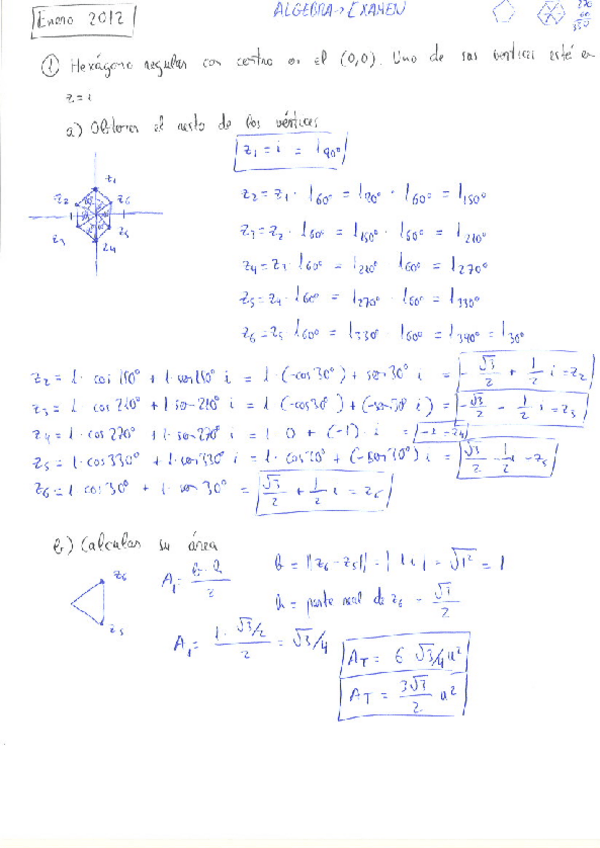 Enero 2012
ALGEBRA → EXAMEN
① Hexágono regular con centro en el (0,0). Uno de sus vértices está en
z = i
a) Obtener el resto de los vértices
z₁ = i = 1₉₀°
z₂ = z₁ · 1₆₀° = 1₉₀° · 1₆₀° = 1₁₅₀°
z₃ = z₂ · 1₆₀° = 1₁₅₀° · 1₆₀° = 1₂₁₀°
z₄ = z₃ · 1₆₀° = 1₂₁₀° 1₆₀° = 1₂₇₀°
z₅ = z₄ · 1₆₀° = 1₂₇₀° · 1₆₀° = 1₃₃₀°
z₆ = z₅ 1₆₀° = 1₃₃₀° · 1₆₀° = 1₃₉₀° = 1₃₀°
z₁
z₂ z₆
z₃ z₅
z₄
z₂ = 1 · cos 150° + 1 · sen 150° i = 1 · (-cos 30°) + sen 30° i = -√3/2 + 1/2 i = z₂
z₃ = 1 · cos 210° + 1 sen 210° i = 1 (-cos 30°) + (-sen 30° i) = -√3/2 - 1/2 i = z₃
z₄ = 1 · cos 270° + 1 · sen 270° i = 1 · 0 + (-1) · i = -i = z₄
z₅ = 1 · cos 330° + 1 · cos 330° i = 1 · cos 30° + (-sen 30°) i = √3/2 - 1/2 i = z₅
z₆ = 1 cos 30° + 1 · sen 30° = √3/2 + 1/2 i = z₆
b) Calcular su área
z₆
z₅
A₁ = b · h / 2
b = ||z₆ - z₅|| = | 1i | = √1² = 1
h = parte real de z₆ = √3/2
A₁ = 1 · √3/2 / 2 = √3/4
A_T = 6 √3/4 u²
A_T = 3√3/2 u²